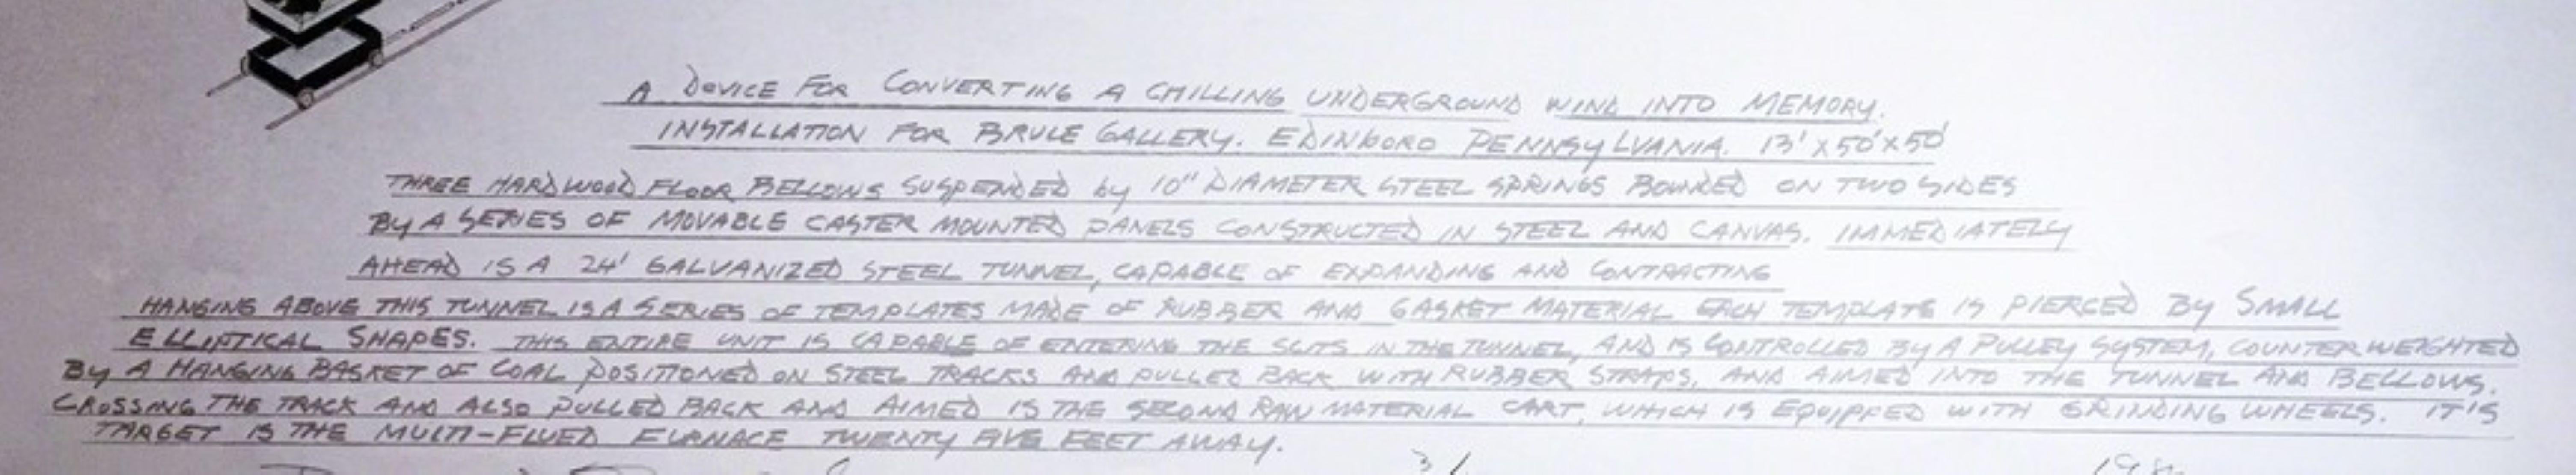 A DEVICE FOR CONVERTING A CHILLING UNDERGROUND WIND INTO MEMORY.
INSTALLATION FOR BRULE GALLERY. EDINBORO PENNSYLVANIA. 13' X 50' X 50'
THREE HARDWOOD FLOOR BELLOWS SUSPENDED by 10" DIAMETER STEEL SPRINGS BOUNDED ON TWO SIDES
BY A SERIES OF MOVABLE CASTER MOUNTED PANELS CONSTRUCTED IN STEEL AND CANVAS. IMMEDIATELY
AHEAD IS A 24' GALVANIZED STEEL TUNNEL, CAPABLE OF EXPANDING AND CONTRACTING
HANGING ABOVE THIS TUNNEL IS A SERIES OF TEMPLATES MADE OF RUBBER AND GASKET MATERIAL EACH TEMPLATE IS PIERCED BY SMALL
ELLIPTICAL SHAPES. THIS ENTIRE UNIT IS CAPABLE OF ENTERING THE SLITS IN THE TUNNEL, AND IS CONTROLLED BY A PULLEY SYSTEM, COUNTER WEIGHTED
BY A HANGING BASKET OF COAL POSITIONED ON STEEL TRACKS AND PULLED BACK WITH RUBBER STRAPS, AND AIMED INTO THE TUNNEL AND BELLOWS.
CROSSING THE TRACK AND ALSO PULLED BACK AND AIMED IS THE SECOND RAW MATERIAL CART, WHICH IS EQUIPPED WITH GRINDING WHEELS. IT'S
TARGET IS THE MULTI-FLUED FURNACE TWENTY FIVE FEET AWAY.